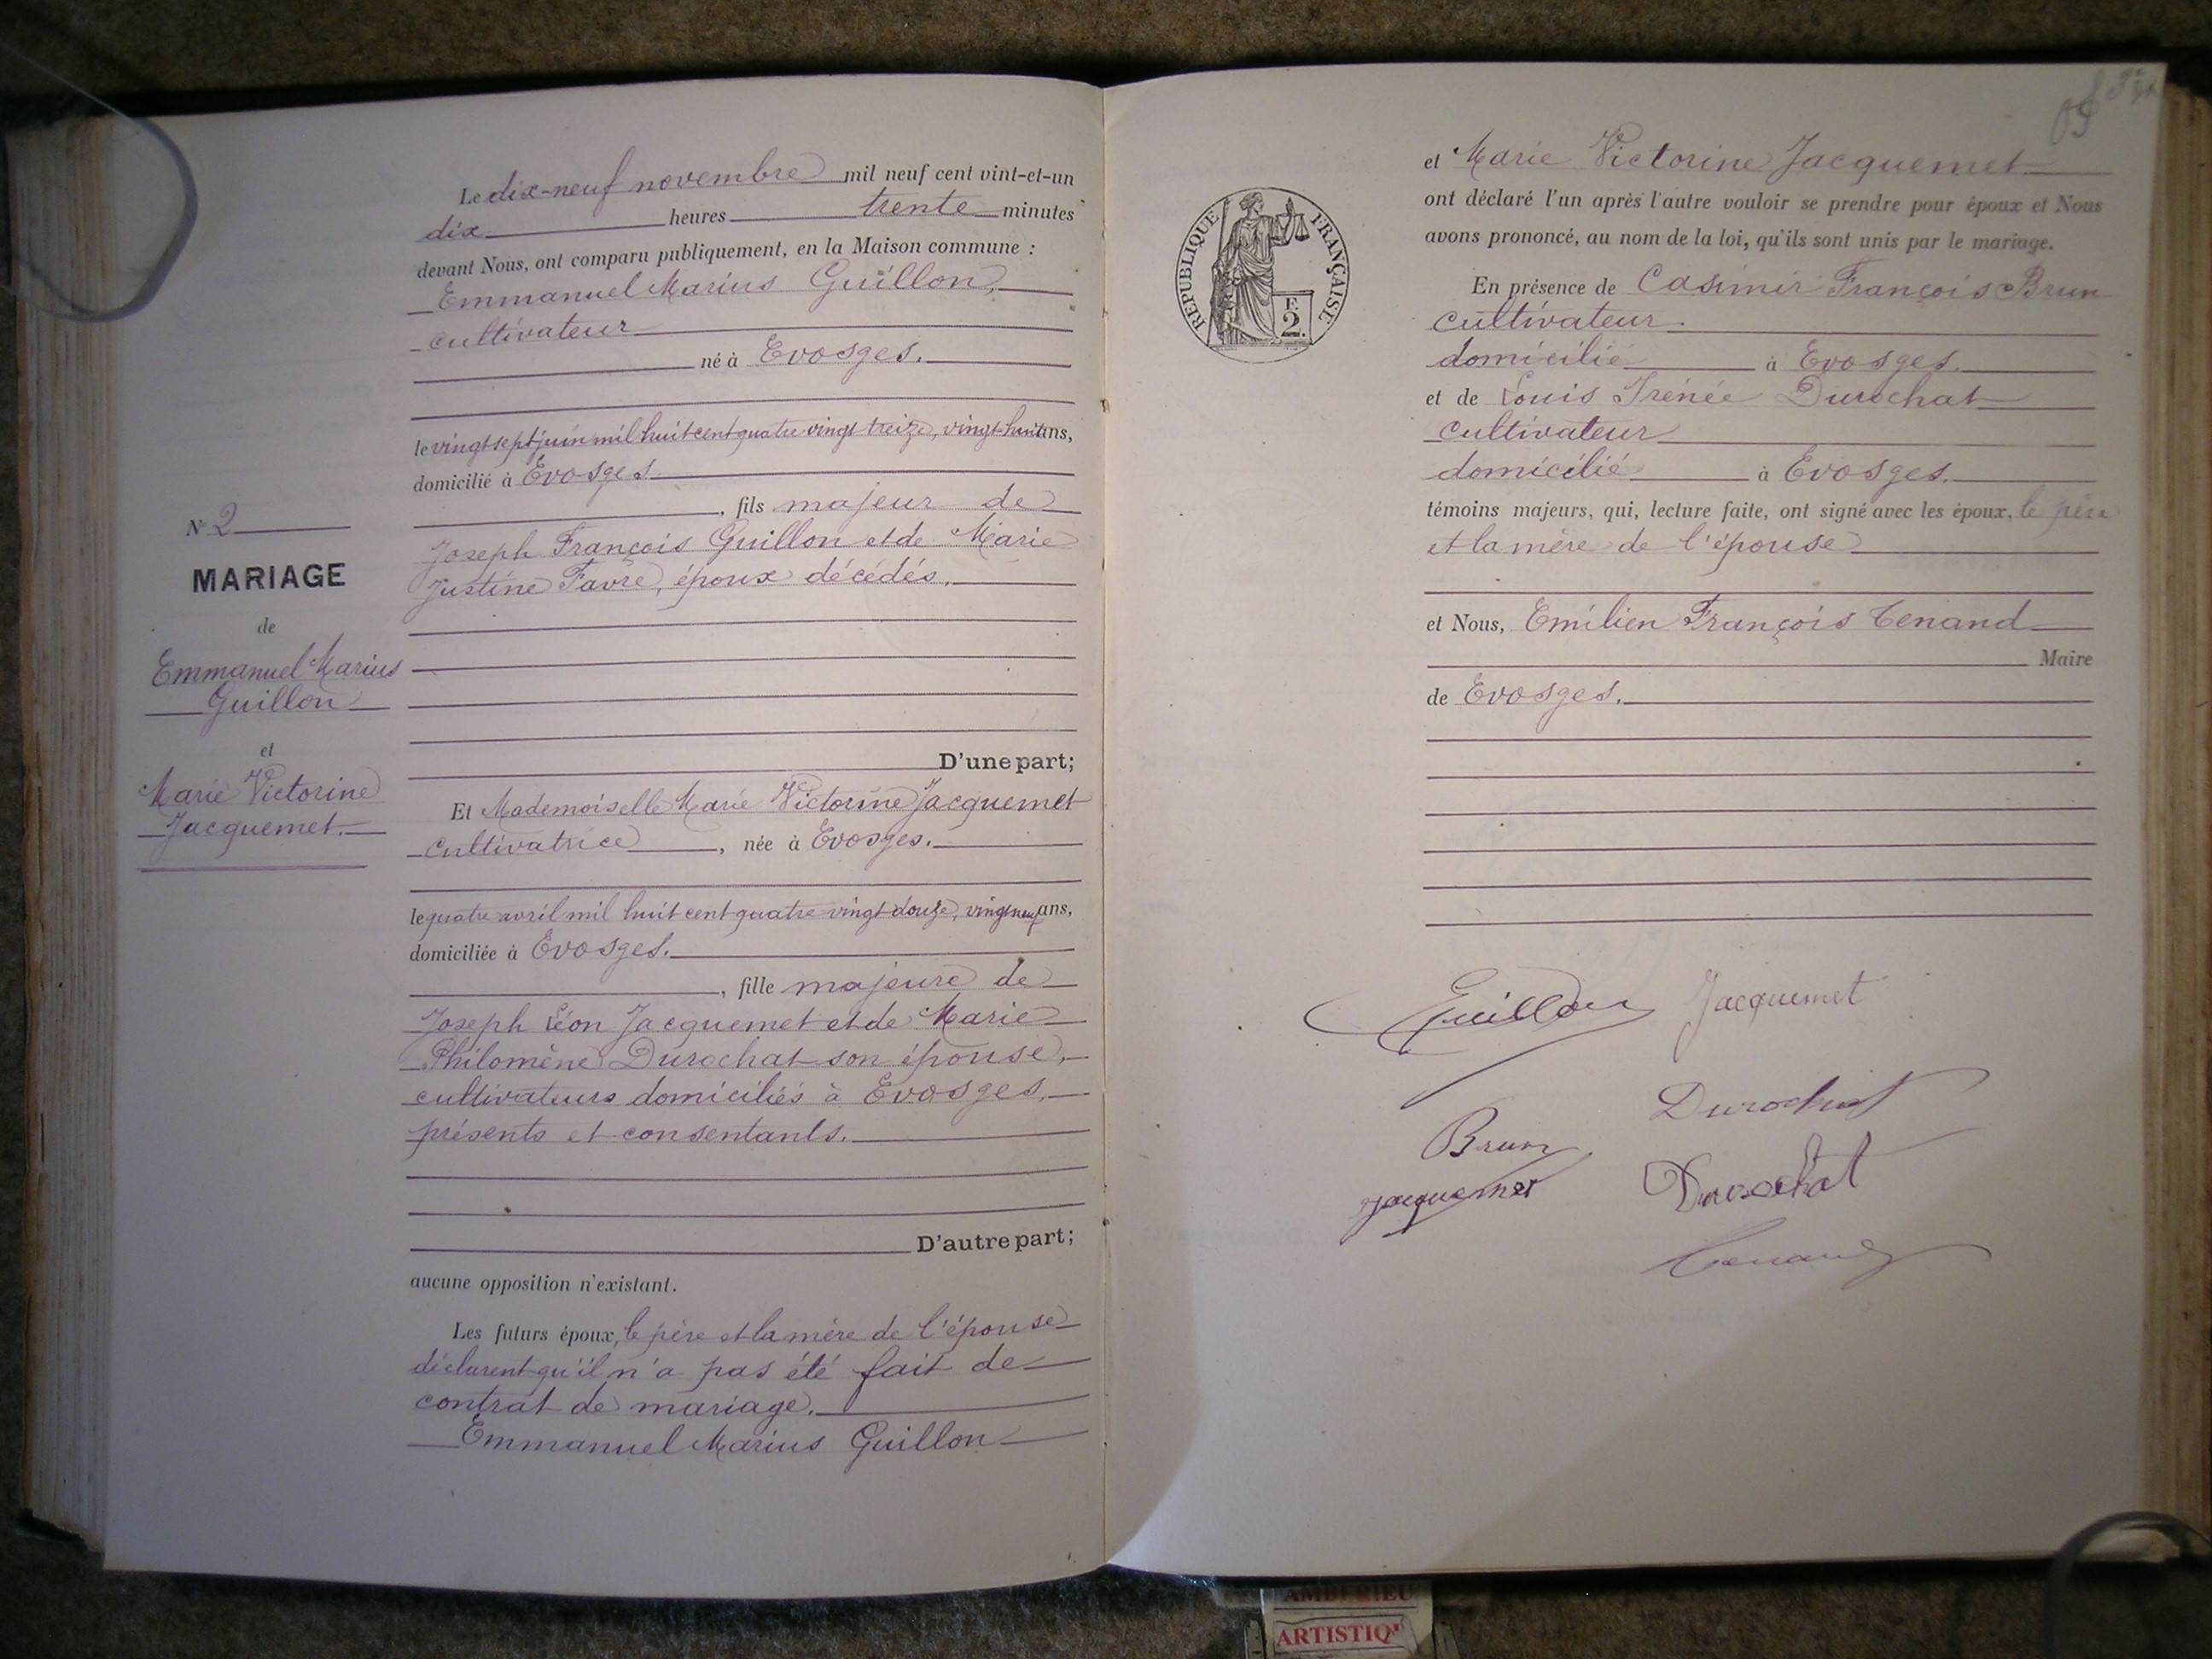 N° 2
MARIAGE
de
Emmanuel Marius
Guillon
et
Marie Victorine
Jacquemet.
Le dix-neuf novembre mil neuf cent vint-et-un
dix heures trente minutes
devant Nous, ont comparu publiquement, en la Maison commune :
Emmanuel Marius Guillon,
cultivateur
né à Evosges.
le vingt sept juin mil huit cent quatre vingt treize, vingt-huit ans,
domicilié à Evosges
, fils majeur de
Joseph François Guillon et de Marie
Justine Favre, époux décédés.
D'une part;
Et Mademoiselle Marie Victorine Jacquemet
cultivatrice, née à Evosges.
le quatre avril mil huit cent quatre vingt douze, vingt neuf ans,
domiciliée à Evosges.
, fille majeure de
Joseph Léon Jacquemet et de Marie
Philomène Durochat son épouse,
cultivateurs domiciliés à Evosges,
présents et consentants.
D'autre part;
aucune opposition n'existant.
Les futurs époux, le père et la mère de l'épouse
déclarent qu'il n'a pas été fait de
contrat de mariage.
Emmanuel Marius Guillon
et Marie Victorine Jacquemet
ont déclaré l'un après l'autre vouloir se prendre pour époux et Nous
avons prononcé, au nom de la loi, qu'ils sont unis par le mariage.
REPUBLIQUE FRANÇAISE
F.
2.
En présence de Casimir François Brun
cultivateur.
domicilié à Evosges.
et de Louis Irénée Durochat
cultivateur
domicilié à Evosges.
témoins majeurs, qui, lecture faite, ont signé avec les époux, le père
et la mère de l'épouse
et Nous, Emilien François Tenand
Maire
de Evosges.
Guillon Jacquemet
Durochat
Brun
Jacquemet Durochat
Tenand
AMBERIEU
ARTISTIQ